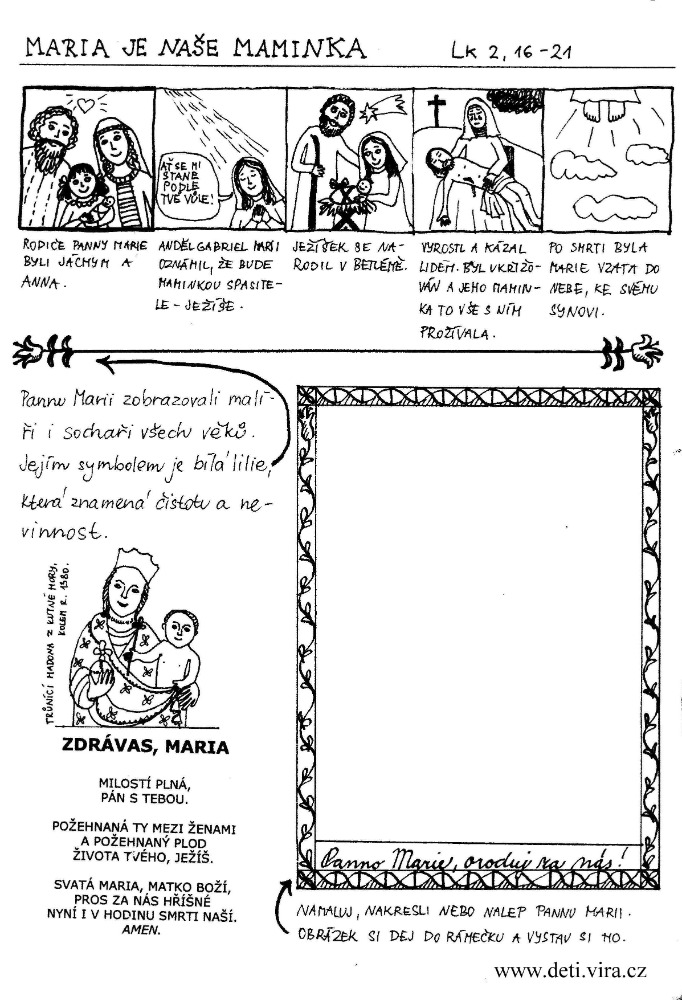 MARIA JE NAŠE MAMINKA
Lk 2, 16-21
AŤ SE MI
STANE
PODLE
TVÉ VŮLE!
RODIČE PANNY MARIE
BYLI JÁCHYM A
ANNA.
ANDĚL GABRIEL MARII
OZNÁMIL, ŽE BUDE
MAMINKOU SPASITE-
LE - JEŽÍŠE.
JEŽÍŠEK SE NA-
RODIL V BETLÉMĚ.
VYROSTL A KÁZAL
LIDEM. BYL UKŘIŽO-
VÁN A JEHO MAMIN-
KA TO VŠE S NÍM
PROŽÍVALA.
PO SMRTI BYLA
MARIE VZATA DO
NEBE, KE SVÉMU
SYNOVI.
Pannu Marii zobrazovali malí-
ři i sochaři všech věků.
Jejím symbolem je bílá lilie,
která znamená čistotu a ne-
vinnost.
TRŮNÍCÍ MADONA Z KUTNÉ HORY,
KOLEM R. 1380.
ZDRÁVAS, MARIA
MILOSTÍ PLNÁ,
PÁN S TEBOU.
POŽEHNANÁ TY MEZI ŽENAMI
A POŽEHNANÝ PLOD
ŽIVOTA TVÉHO, JEŽÍŠ.
SVATÁ MARIA, MATKO BOŽÍ,
PROS ZA NÁS HŘÍŠNÉ
NYNÍ I V HODINU SMRTI NAŠÍ.
AMEN.
Panno Marie, oroduj za nás!
NAMALUJ, NAKRESLI NEBO NALEP PANNU MARII.
OBRÁZEK SI DEJ DO RÁMEČKU A VYSTAV SI HO.
www.deti.vira.cz